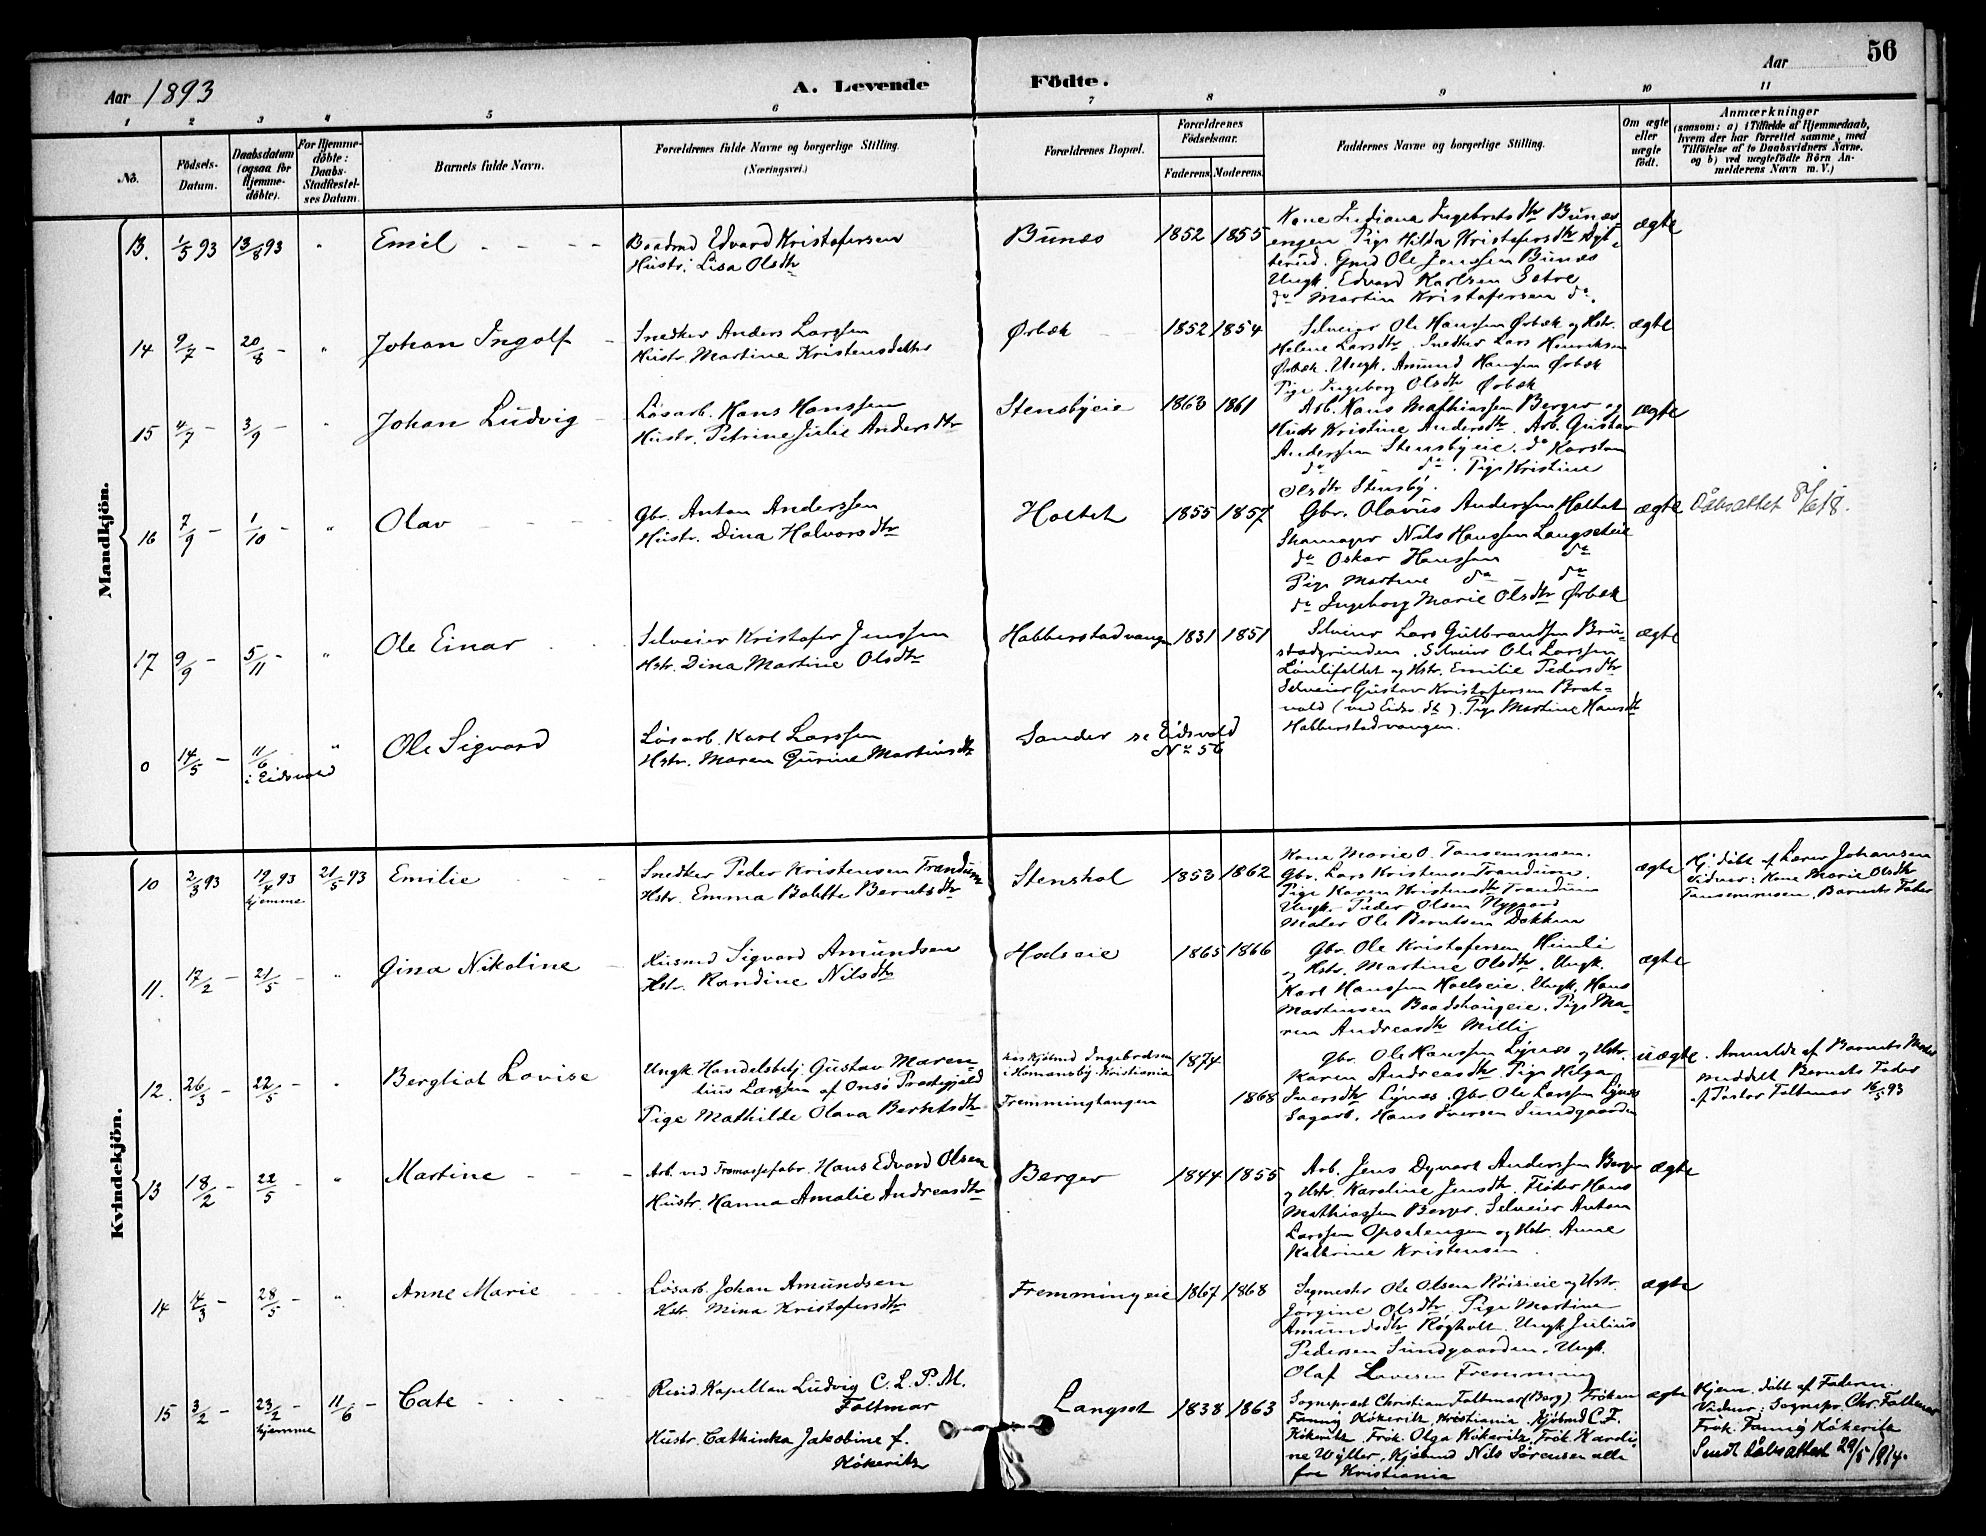 56
Aar 1893
A. Levende Födte.
Aar
1 2 3 4 5 6 7 8 9 10 11
No.
Födsels-Datum.
Daabsdatum (ogsaa for Hjemme-döbte).
For Hjemme-döbte: Daabs-Stadfæstel-ses Datum.
Barnets fulde Navn.
Forældrenes fulde Navne og borgerlige Stilling.
(Næringsvei.)
Forældrenes Bopæl.
Forældrenes Födselsaar.
Faderens. Moderens.
Faddernes Navne og borgerlige Stilling.
Om ægte eller uægte födt.
Anmærkninger
(saasom: a) i Tilfælde af Hjemmedaab, hvem der har forrettet samme, med Tilföielse af to Daabsvidners Navne. og b) ved uægtefödte Börn An-melderens Navn m. V.)
Mandkjön.
13. 1/5 93 13/8 93 " Emil
Edvard Kristofersen
Hustr. Lisa Olsdtr
Bunæs 1852 1855
Kone Indiana Ingebretsdtr Bunæs
engen Pige Hilda Kristofersdtr
Gmd Ole Jenssen Bunæs
Ungk. Edvard Karlsen Sætre
do Martin Kristofersen do.
ægte
14 9/7 - 20/8 - " Johan Ingolf
Snedker Anders Larssen
Hustr. Martine Kristensdatter
Ørbæk 1852 1854
Selveier Ole Hanssen Ørbæk og Hstr.
Helene Larsdtr. Snedker Lars Henriksen
Ørbæk. Ungk. Amund Hanssen Ørbæk
Pige Ingeborg Olsdtr Ørbæk
ægte
15 4/7 - 3/9 - " Johan Ludvig
Løsarb. Hans Hanssen
Hustr. Petrine Julie Andersdtr
Stensbyeie 1863 1861
Arb. Hans Mathiassen Berger og
Hustr Kristine Andersdtr. Arb. Gustav
Anderssen Stensbyeie. do Karsten
do do. Pige Kristine
Olsdtr Stensby.
ægte
16 7/9 - 1/10 - " Olav
Gbr. Anton Anderssen
Hustr. Dina Halvorsdtr
Holtet 1855 1857
Gbr. Olavus Anderssen Holtet
Skomager Nils Hanssen Langseteie
do Oskar Hanssen do
Pige Martine do - do
do Ingeborg Marie Olsdtr Ørbæk
ægte Dåbsattet
17 9/9 - 5/11 - " Ole Einar
Selveier Kristofer Jenssen
Hstr. Dina Martine Olsdtr
Habberstadvangen 1831 1851
Selveier Lars Gulbrandsen Bru-
stadgrinden. Selveier Ole Larssen
Lønlifeldet og Hstr. Emilie Pedersdtr
Selveier Gustav Kristofersen Brat-
vold (ved Eidsv. St). Pige Martine Hansdtr
Habberstadvangen.
ægte
0 14/5 - 11/6 i Eidsvold " Ole Sigvard
Løsarb. Karl Larssen
Hstr. Maren Gurine Martinsdtr
Sander se Eidsvold
No 56
Kvindekjön.
10 2/3 93 19/4 93 hjemme 21/5 93 Emilie
Snedker Peder Kristensen Trandum
Hstr. Emma Bolette Berntsdtr
Stenshol 1853 1862
Kone Marie O. Tansemmoen.
Gbr. Lars Kristensen Trandum.
Pige Karen Kristensdtr Trandum
Ungk. Peder Olsen Nygaard
Maler Ole Berntsen Dokken
ægte
Hj. døbt af Lærer Johansen
Vidner: Kone Marie Olsdtr
Tansemmoen, Barnets Fader
11. 17/2 - 21/5 - " Gina Nikoline
Husmd Sigvard Amundsen
Hstr. Randine Nilsdtr
Holseie 1865 1866
Gbr. Ole Kristofersen Heimli
og Hstr. Martine Olsdtr. Ungk.
Karl Hanssen Holseie. Ungk. Hans
Martinsen Baadshaugeie. Pige Ma-
ren Andreasdtr Milli
ægte
12. 26/3 - 22/5 - " Bergliot Lovise
Ungk. Handelsbetj. Gustav Maren-
tius Larssen af Onsø Præstegjeld
Pige Mathilde Olava Berntsdtr
hos Kjøbmd Ingebretsen
i Homansby Kristiania 1874
Fremmingtangen 1868
Gbr. Ole Hanssen Lynæs og Hstr.
Karen Andreasdtr. Pige Helga
Iversdtr Lynæs. Gbr. Ole Larssen Lynæs
Sagarb. Hans Iversen Sundgaarden
uægte
Anmeldt af Barnets Moder
Meddelt Barnets Fader
af Pastor Faltmar 16/5 93
13 18/2 - 22/5 - " Martine
Arb. ved Træmassefabr. Hans Edvard Olsen
Hustr. Hanna Amalie Andreasdtr
Berger 1844 1855
Arb. Jens Dyvart Anderssen Berger
og Hstr. Karoline Jensdtr. Fløter Hans
Mathiassen Berger. Selveier Anton
Larssen Opsalengen og Hstr. Anne
Kathrine Kristensen.
ægte
14 14/3 - 28/5 - " Anne Marie
Løsarb. Johan Amundsen
Hstr. Mina Kristofersdtr
Fremmingeie 1867 1868
Sagmester Ole Olsen Røiseie og Hstr.
Jørgine Olsdtr. Pige Martine
Amundsdtr Røgholt. Ungk Julius
Pedersen Sundgaarden. Ungk.
Olaf Lovesen Fremming
ægte
15 3/2 - 23/2 - hjemme 11/6 - Cate
Resid. Kapellan Ludvig C. L. P. M.
Faltmar
Hustr. Cathinka Jakobine f.
Køkeritz
Langset 1838 1863
Sogneprest Christian Faltmar (Berg). Frøken
Fanny Kökeritz, Kristiania. Kjøbmd C. F.
Kökeritz. Frøk. Olga Kökeritz, Frøk. Karoli-
ne Wyller, Kjøbmd Nils Sörensen alle
fra Kristiania
ægte
Hjem. døbt af Faderen.
Vidner: Sognepr. Chr. Faltmar
Frök. Fanny Kökeritz
Sendt dåbsattest 29/5 1914.